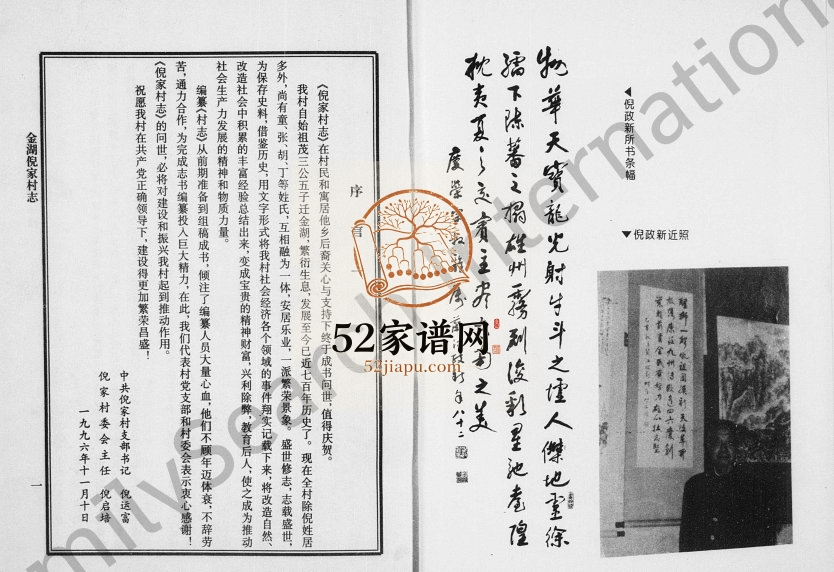 ◀倪政新所书条幅
▼倪政新近照
物華天寶龍光射牛斗之墟人傑地靈徐
孺下陳蕃之榻雄州霧列俊彩星池臺隍
枕夷夏之交賓主盡東南之美
序言一
《倪家村志》在村民和寓居他乡后裔关心与支持下终于成书问世,值得庆贺。
我村自始祖茂三公五子迁金湖,繁衍生息,发展至今已近七百年历史了。现在全村除倪姓居
多外,尚有童、张、胡、丁等姓氏,互相融为一体,安居乐业,一派繁荣景象。盛世修志,志载盛世,
为保存史料,借鉴历史,用文字形式将我村社会经济各个领域的事件翔实记载下来,将改造自然、
改造社会中积累的丰富经验总结出来,变成宝贵的精神财富,兴利除弊,教育后人,使之成为推动
社会生产力发展的精神和物质力量。
编纂《村志》从前期准备到组稿成书,倾注了编纂人员大量心血,他们不顾年迈体衰,不辞劳
苦,通力合作,为完成志书编纂投入巨大精力,在此,我们代表村党支部和村委会表示衷心感谢!
《倪家村志》的问世,必将对建设和振兴我村起到推动作用。
祝愿我村在共产党正确领导下,建设得更加繁荣昌盛!
中共倪家村支部书记 倪运富
倪家村委会主任 倪启培
一九九六年十一月十日
金湖倪家村志
一
52家谱网
52jiapu.com